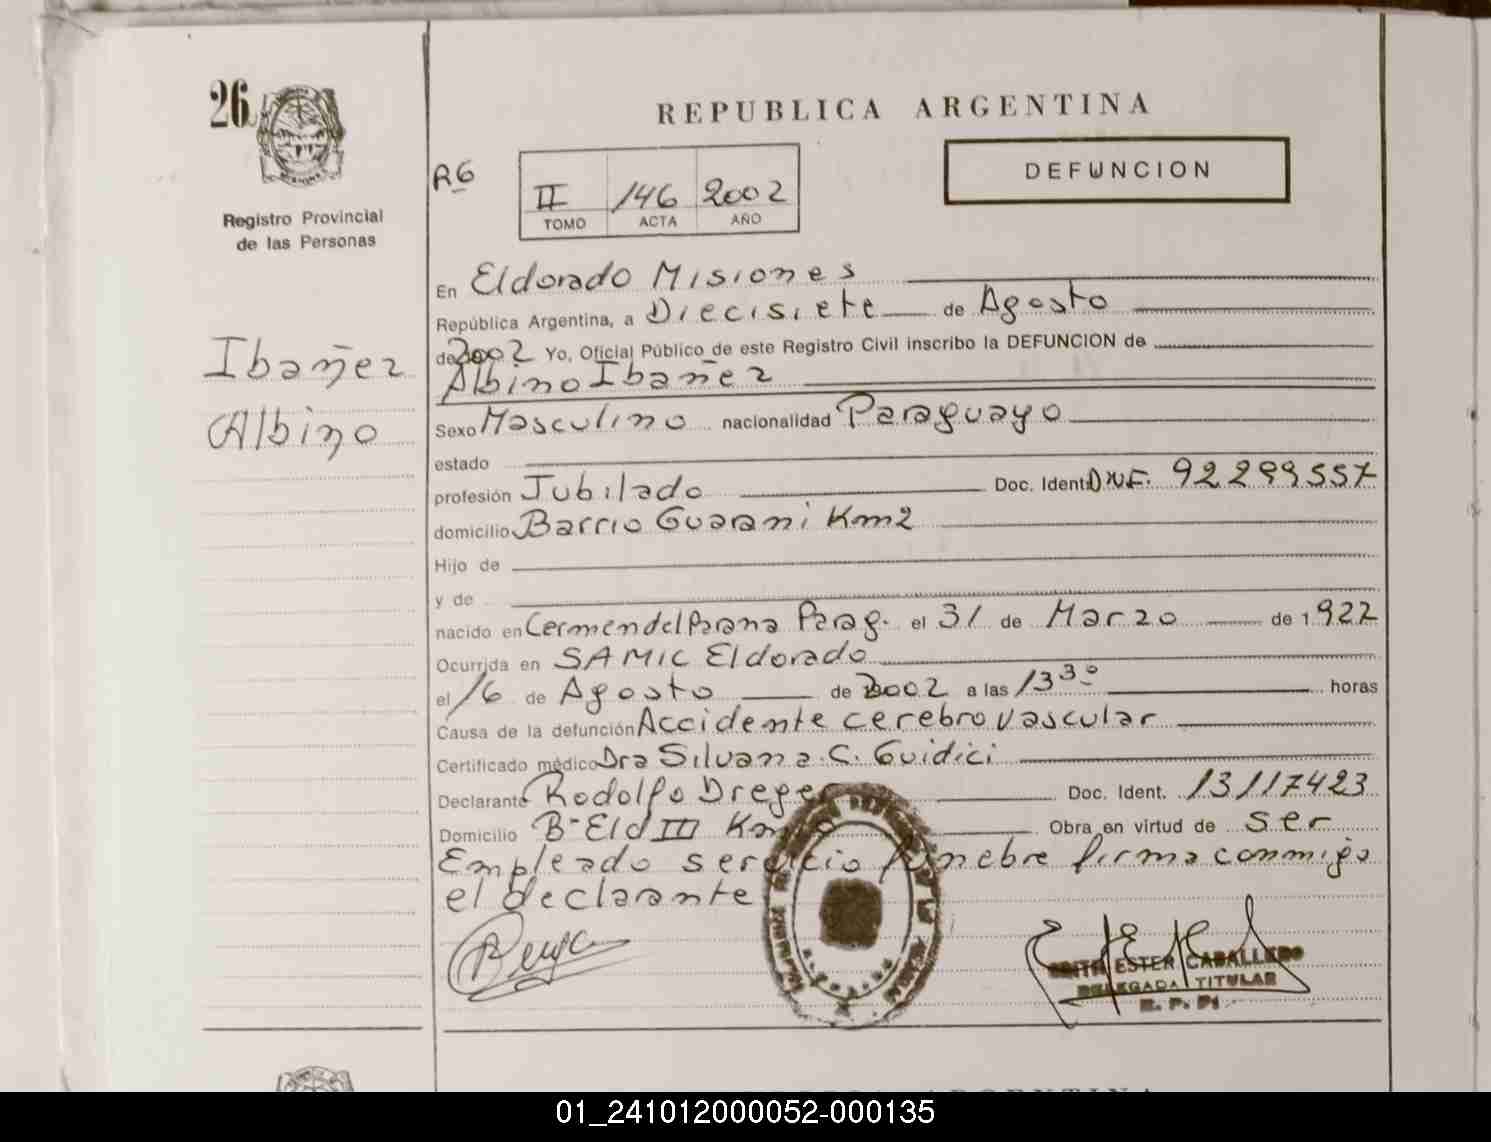 26
REPUBLICA ARGENTINA
DEFUNCION
R6
II 146 2002
TOMO ACTA AÑO
Registro Provincial
de las Personas
Ibañez
Albino
En Eldorado Misiones
República Argentina, a Diecisiete de Agosto
de 2002 Yo, Oficial Público de este Registro Civil inscribo la DEFUNCION de
Albino Ibañez
Sexo Masculino nacionalidad Paraguayo
estado
profesión Jubilado Doc. Ident. 92299557
domicilio Barrio Guarani Km2
Hijo de
y de
nacido en Cermendel Parana Parag. el 31 de Marzo de 1922
Ocurrida en SAMIC Eldorado
el 16 de Agosto de 2002 a las 13 30 horas
Causa de la defunción Accidente cerebro vascular
Certificado médico Dra Silvana C. Guidici
Declarante Rodolfo Dreger Doc. Ident. 13117423
Domicilio B- Eld III Km Obra en virtud de ser
Empleado servicio funebre firma conmigo
el declarante
EDITH ESTER CABALLERO
DELEGADA TITULAR
R. P. P.
REPUBLICA ARGENTINA
01_241012000052-000135